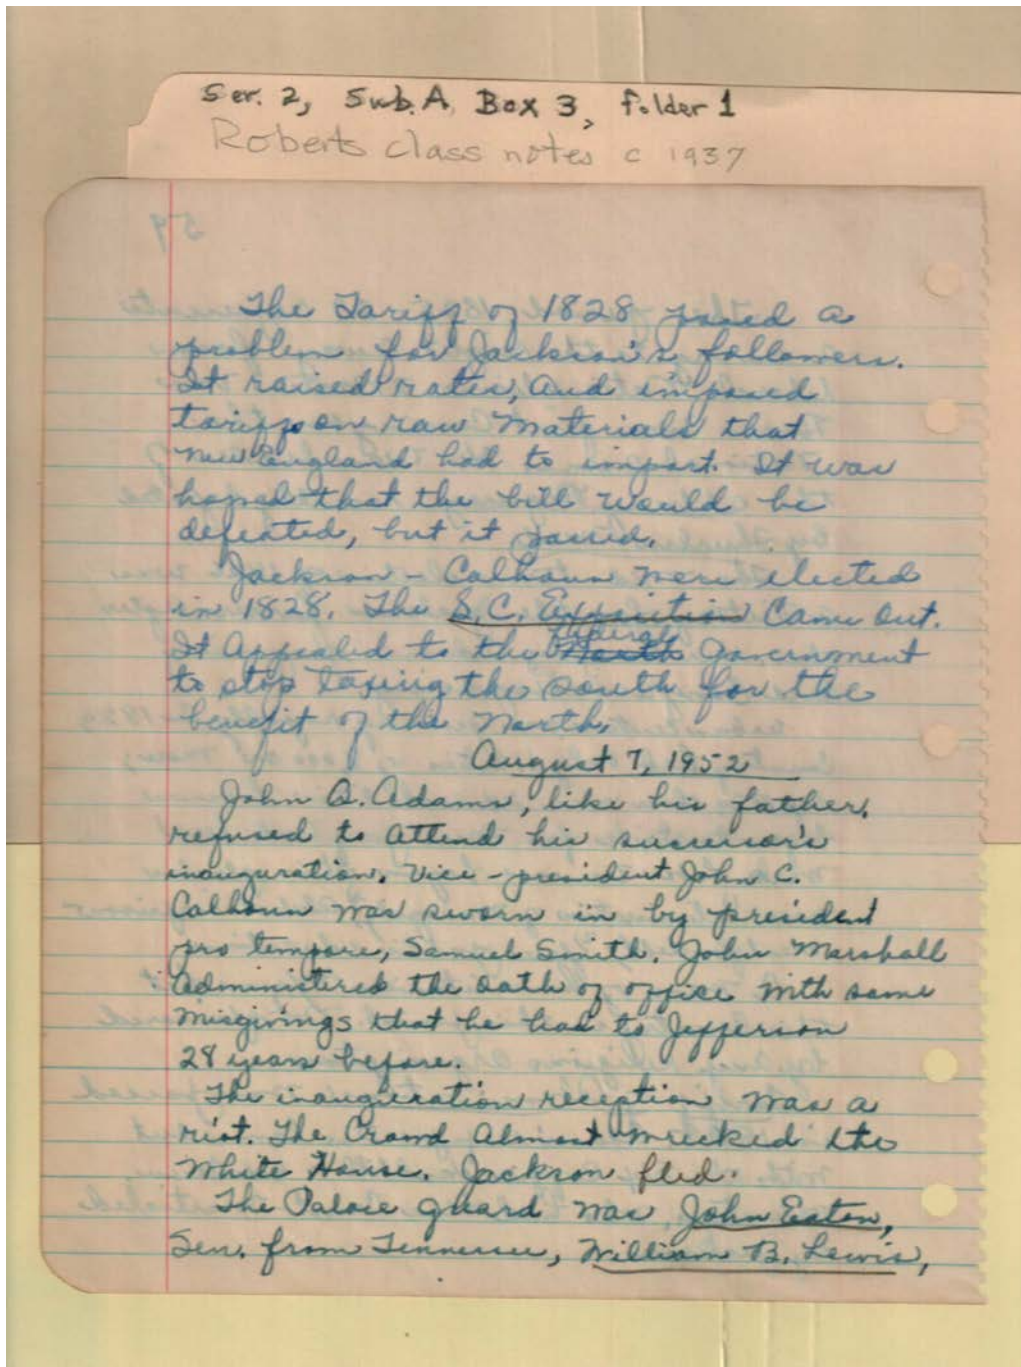 Ser. 2, Sub. A, Box 3, folder 1
Roberts class notes c 1937
59
The Tariff of 1828 posed a
problem for Jackson's followers.
It raised rates, and imposed
tariffs on raw materials that
New England had to import. It was
hoped that the bill would be
defeated, but it passed.
Jackson - Calhoun were elected
in 1828. The S.C. Exposition came out.
federal
It appealed to the North government
to stop taxing the south for the
benefit of the North.
August 7, 1952
John Q. Adams, like his father,
refused to attend his successor's
inauguration. Vice-president John C.
Calhoun was sworn in by president
pro tempore, Samuel Smith. John Marshall
administered the oath of office with same
misgivings that he had to Jefferson
28 years before.
The inauguration reception was a
riot. The crowd almost wrecked the
White House. Jackson fled.
The Palace guard was John Eaton,
Sen. from Tennessee, William B. Lewis,